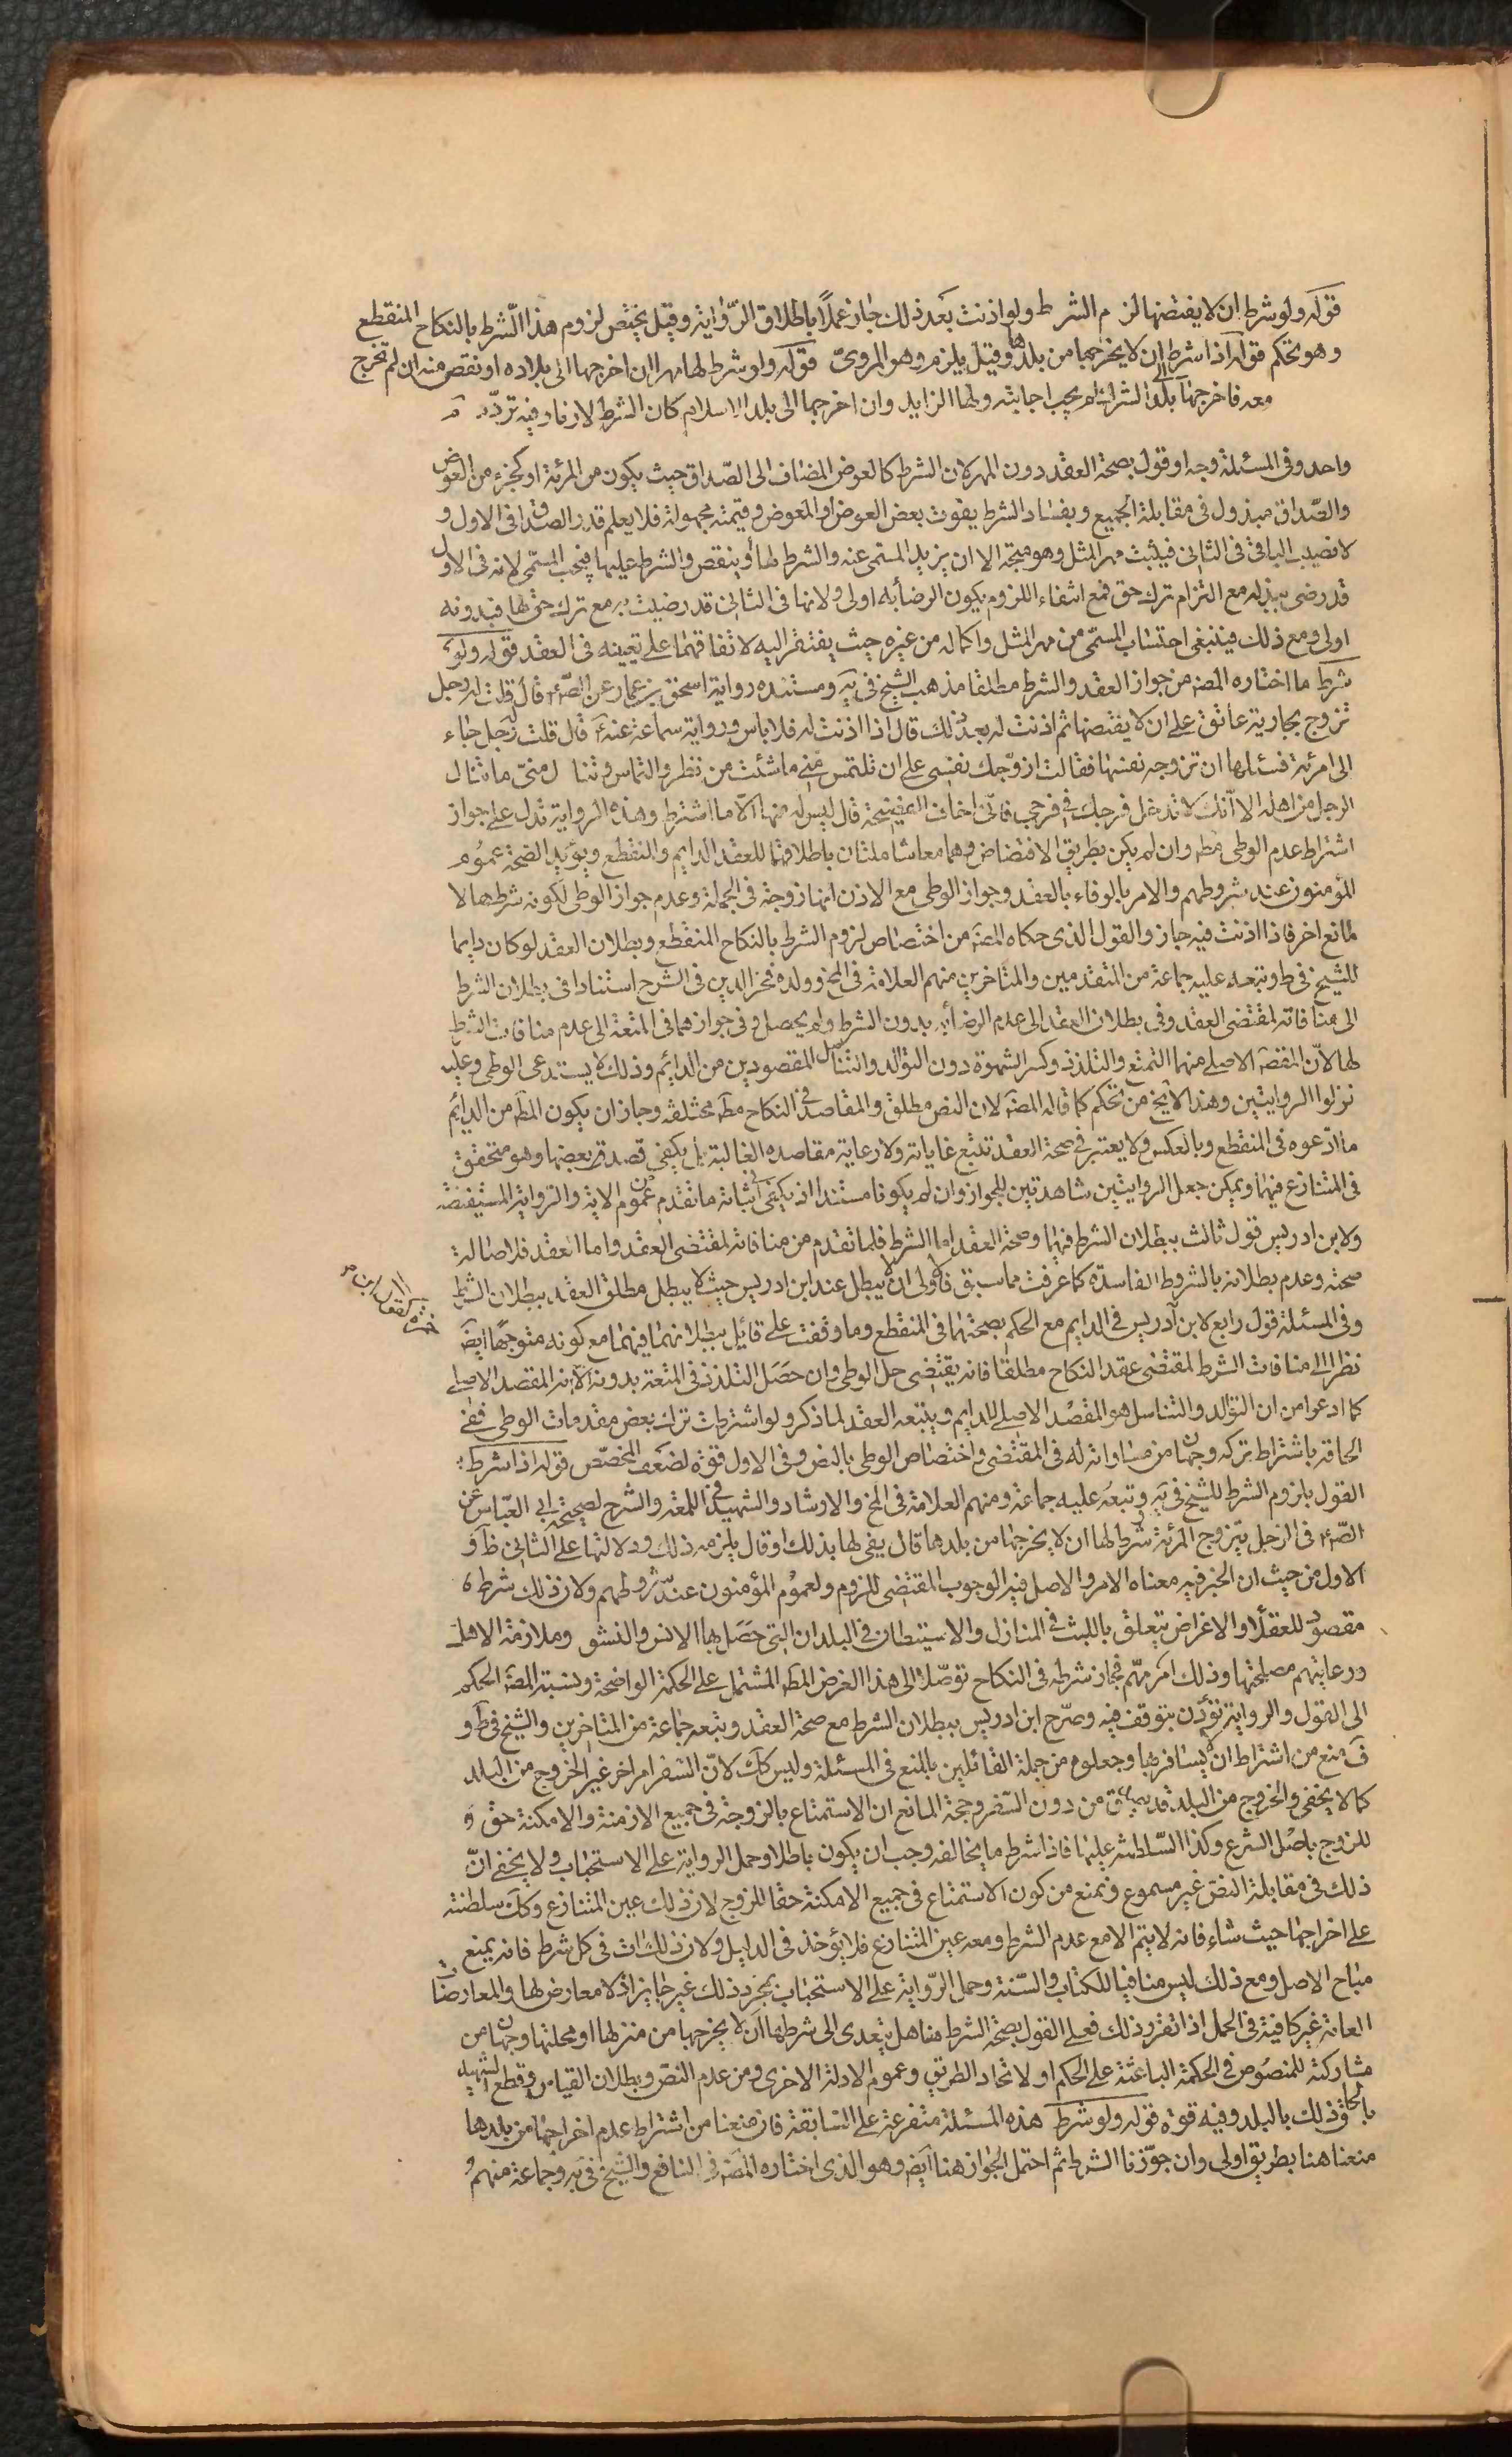 قوله ولو شرط ان لا يفتضها لزم الشرط ولو اذنت بعد ذلك جاز عملًا باطلاق الرّواية وقيل يختص لزوم هذا الشرط بالنكاح المنقطع
وهو تحكم قوله اذا شرط ان لا يخرجها من بلدها وقيل يلزم وهو المروىّ قوله ولو شرط لها مهرا ان اخرجها الى بلاده او نقص منه ان لم تخرج
معه فاخرجها الى بلد الشرك لم يجب اجابته ولها الزايد وان اخرجها الى بلد الاسلام كان الشرط لازما وفيه تردّد
واحد وفى المسئلة وجه او قول بصحة العقد دون المهر لان الشرط كالعوض المضاف الى الصّداق حيث يكون من المرئة او كجزء من العوض
والصّداق مبذول فى مقابلة الجميع وبفساد الشرط يفوت بعض العوض او المعوض وقيمته مجهولة فلا يعلم قدر الصداق فى الاول و
لا نصيب الباقى فى الثانى فيثبت مهر المثل وهو متجه الا ان يزيد المسمى عنه والشرط لها او ينقص والشرط عليها فيجب المسمّى لانه فى الاول
قد رضى ببذله مع التزام ترك حق فمع انتفاء اللزوم يكون الرضا به اولى ولانها فى الثانى قد رضيت به مع ترك حق لها فبدونه
اولى ومع ذلك فينبغى احتساب المسمّى من مهر المثل واكماله من غيره حيث يفتقر اليه لاتفاقهما على تعيينه فى العقد قوله ولو
شرط ما اختاره المصَ من جواز العقد والشرط مطلقا مذهب الشيخ فى يَه ومستنده رواية اسحق بن عمار عن الصّ قال قلت له رجل
تزوج بجارية عاتق على ان لا يفتضها ثم اذنت له بعد ذلك قال اذا اذنت له فلا باس ورواية سماعة عنه قال قلت رجل جاء
الى امرئة فسئلها ان تزوجه نفسها فقالت ازوّجك نفسى على ان تلتمس منّى ما شئت من نظر والتماس وتنال منىّ ما ينال
الرجل من اهله الا انك لا تدخل فرجك فى فرجى فانى اخاف الفضيحة قال ليس له منها الّا ما اشترط وهذه الرواية تدل على جواز
اشتراط عدم الوطى مطَ وان لم يكن بطريق الافتضاض وهما معا شاملتان باطلاقهما للعقد الدايم والمنقطع ويؤيد الصّحة عموم
المؤمنون عند شروطهم والامر بالوفاء بالعقد وجواز الوطى مع الاذن انها زوجة فى الجملة وعدم جواز الوطى لكونه شرط لها لا
لمانع اخر فاذا اذنت فيه جاز والقول الذى حكاه المصَ من اختصاص لزوم الشرط بالنكاح المنقطع وبطلان العقد لو كان دايما
للشيخ فى ط وتبعه عليه جماعة من المتقدمين والمتاخرين منهم العلامة فى المخ وولده فخر الدين فى الشرح استنادا فى بطلان الشرط
الى منافاته لمقتضى العقد وفى بطلان العقد الى عدم الرضا به بدون الشرط ولم يحصل وفى جوازهما فى المتعة الى عدم منافات الشرط
لها لانّ المقصَ الاصلى منها التمتع والتلذذ وكسر الشهوة دون التوالد والتناسل المقصودين من الدائم وذلك لا يستدعى الوطى وعليه
نزلوا الروايتين وهذا لا يخ من تحكم كما قاله المصَ لان النص مطلق والمقاصد فى النكاح مطَ مختلفة وجاز ان يكون المطَ من الدائم
ما ادّعوه فى المنقطع وبالعكس ولا يعتبر فى صحة العقد تتبع غاياته ولا رعاية مقاصده الغالبة بل يكفى قصد بعضها وهو متحقق
فى المتنازع فيهما ويمكن جعل الروايتين شاهدتين للجواز وان لم يكونا مستندا اذ يكفى فى اثباته ما تقدم من عموم الاية والرواية المستفيضة
ولابن ادريس قول ثالث ببطلان الشرط فيهما وصحة العقد اما الشرط فلما تقدم من منافاته لمقتضى العقد واما العقد فلاصالة
صحته وعدم بطلانه بالشروط الفاسدة كما عرفت مما سبق فالاولى ان لا يبطل عند ابن ادريس حيث لا يبطل مطلق العقد ببطلان الشرط
وفى المسئلة قول رابع لابن ادريس فى الدايم مع الحكم بصحتهما فى المنقطع وما وقفت على قائل ببطلانهما فيهما مع كونه متوجهًا ايضَ
نظرا الى منافات الشرط لمقتضى عقد النكاح مطلقا فانه يقتضى حل الوطى وان حصل التلذذ فى المتعة بدونه لانه المقصد الاصلى
كما ادعوا من ان التوالد والتناسل هو المقصد الاصلى للدايم ويتبعه العقد لما ذكر ولو اشترطت ترك بعض مقدمات الوطى ففى
الحاقه باشتراط تركه وجهان من مساواته له فى المقتضى واختصاص الوطى بالنص وفى الاول قوّة لضعف المخصّص قوله اذا شرط
القول بلزوم الشرط للشيخ فى يَه وتبعه عليه جماعة ومنهم العلامة فى المخ والارشاد والشهيد فى اللمعة والشرح لصحيحة ابى العبّاس عن
الصّ فى الرجل يتزوج المرئة شرط لها ان لا يخرجها من بلدها قال يفى لها بذلك او قال يلزمه ذلك ودلالتها على الثانى ظَ و
الاول من حيث ان الخبر فيه معناه الامر والاصل فيه الوجوب المقتضى للزوم ولعموم المؤمنون عند شروطهم ولان ذلك شرط
مقصود للعقلاء والاغراض يتعلق باللبث فى المنازل والاستيطان فى البلدان التى حصل بها الانس والنشو وملازمة الاهل
ورعايتهم مصلحتها وذلك امر مهّم فجاز شرطه فى النكاح توصّلا الى هذا الغرض المطَ المشتمل على الحكمة الواضحة ونسبة المصَ الحكم
الى القول والرواية تؤذن بتوقف فيه وصرّح ابن ادريس ببطلان الشرط مع صحة العقد وتبعه جماعة من المتاخرين والشيخ فى ط و
ف منع من اشتراط ان لا يسافر بها وجعلوه من جملة القائلين بالمنع فى المسئلة وليس كك لانّ السفر امر اخر غير الخروج من البلد
كما لا يخفى والخروج من البلد قد يصدق من دون السّفر وحجة المانع ان الاستمتاع بالزوجة فى جميع الازمنة والامكنة حق
للزوج باصل الشرع وكذا السّلطنة عليها فاذا شرط ما يخالفه وجب ان يكون باطلا وحمل الرواية على الاستحباب ولا يخفى انّ
ذلك فى مقابلة النص غير مسموع ونمنع من كون الاستمتاع فى جميع الامكنة حقا للزوج لان ذلك عين المتنازع وكك سلطنته
على اخراجها حيث شاء فانه لا يتم الا مع عدم الشرط ومعه عين المتنازع فلا يؤخذ فى الدليل ولان ذلك ات فى كل شرط فانه يمنع
مباح الاصل ومع ذلك ليس منافيا للكتاب والسّنة وحمل الرّواية على الاستحباب بمجرّد ذلك غير جايز اذ لا معارض لها والمعارضات
العامة غير كافية فى الحمل اذا تقرر ذلك فعلى القول بصحة الشرط هنا هل يتعدى الى شرطها ان لا يخرجها من منزلها او محلتها وجهان من
مشاركته للمنصوص فى الحكمة الباعثة على الحكم او لاتحاد الطريق وعموم الادلة الاخرى ومن عدم النصّ وبطلان القياس وقطع الشهيد
بالحاق ذلك بالبلد وفيه قوة قوله ولو شرط هذه المسئلة متفرعة على السّابقة فان منعنا من اشتراط عدم اخراجها من بلدها
منعنا هنا بطريق اولى وان جوّزنا الشرط ثم احتمل الجواز هنا ايضَ وهو الذى اختاره المصَ فى النافع والشيخ فى يَه وجماعة منهم